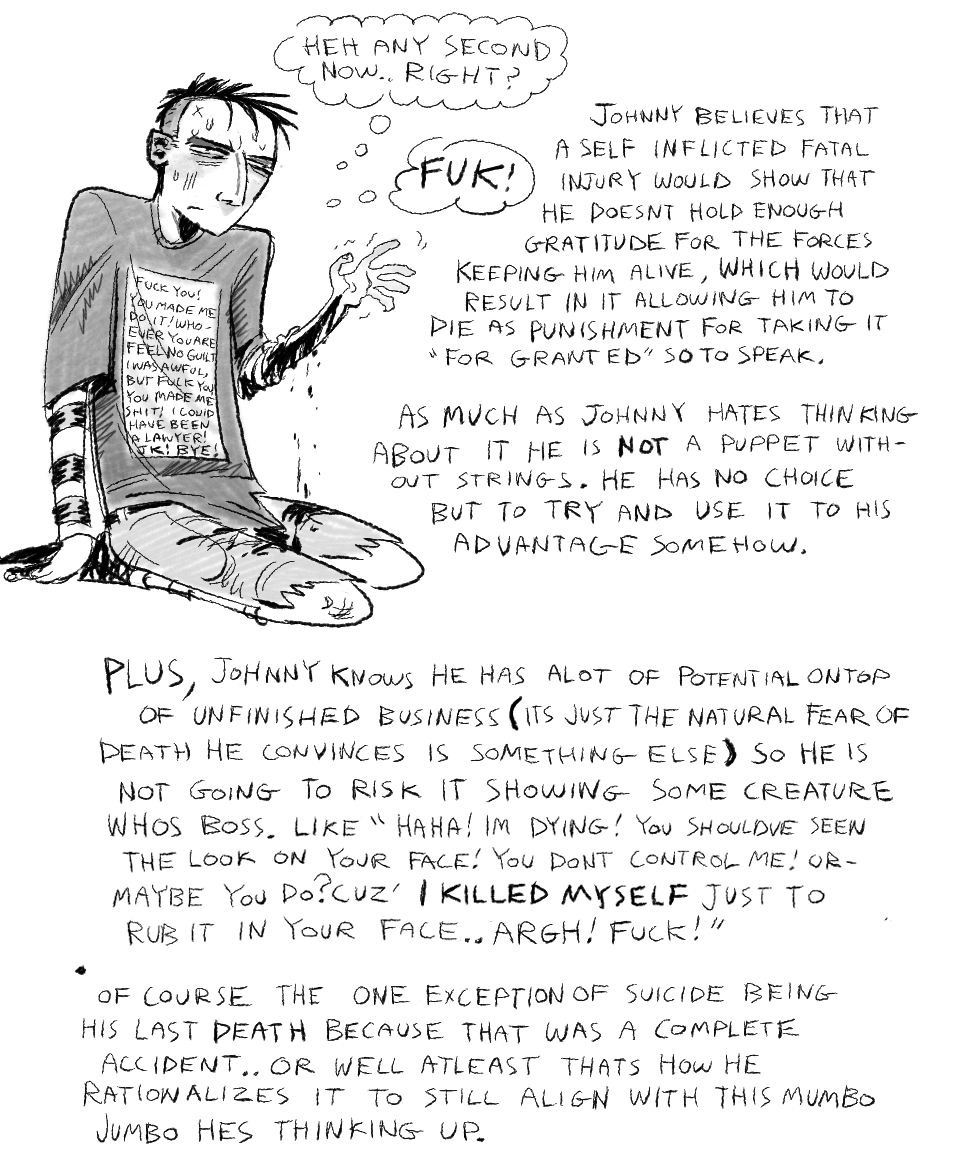 HEH ANY SECOND
NOW.. RIGHT?
FUK!
FUCK YOU!
YOU MADE ME
DO IT! WHO-
EVER YOU ARE
FEEL NO GUILT
I WAS AWFUL,
BUT FUCK YOU
YOU MADE ME
SHIT! I COULD
HAVE BEEN
A LAWYER!
JK! BYE!
JOHNNY BELIEVES THAT
A SELF INFLICTED FATAL
INJURY WOULD SHOW THAT
HE DOESNT HOLD ENOUGH
GRATITUDE FOR THE FORCES
KEEPING HIM ALIVE, WHICH WOULD
RESULT IN IT ALLOWING HIM TO
DIE AS PUNISHMENT FOR TAKING IT
"FOR GRANTED" SO TO SPEAK.
AS MUCH AS JOHNNY HATES THINKING
ABOUT IT HE IS NOT A PUPPET WITH-
OUT STRINGS. HE HAS NO CHOICE
BUT TO TRY AND USE IT TO HIS
ADVANTAGE SOMEHOW.
PLUS, JOHNNY KNOWS HE HAS ALOT OF POTENTIAL ONTOP
OF UNFINISHED BUSINESS (ITS JUST THE NATURAL FEAR OF
DEATH HE CONVINCES IS SOMETHING ELSE) SO HE IS
NOT GOING TO RISK IT SHOWING SOME CREATURE
WHOS BOSS. LIKE "HAHA! IM DYING! YOU SHOULDVE SEEN
THE LOOK ON YOUR FACE! YOU DONT CONTROL ME! OR-
MAYBE YOU DO? CUZ' I KILLED MYSELF JUST TO
RUB IT IN YOUR FACE.. ARGH! FUCK!"
OF COURSE THE ONE EXCEPTION OF SUICIDE BEING
HIS LAST DEATH BECAUSE THAT WAS A COMPLETE
ACCIDENT.. OR WELL ATLEAST THATS HOW HE
RATIONALIZES IT TO STILL ALIGN WITH THIS MUMBO
JUMBO HES THINKING UP.